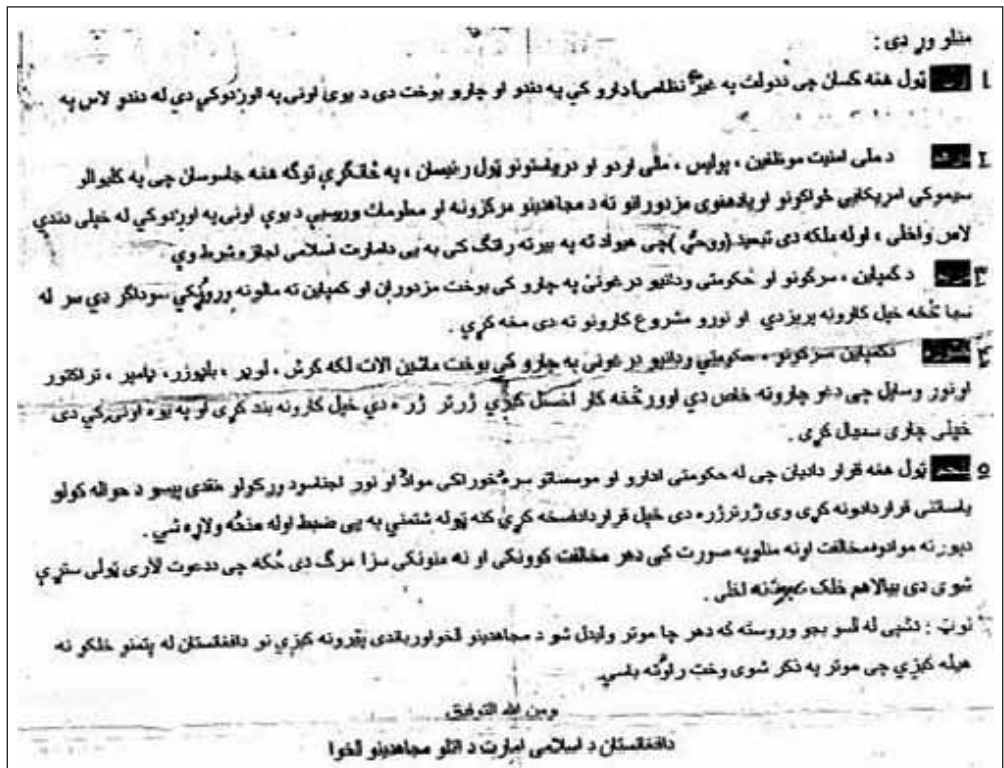 منلو وړ دی :
۱ ټول هغه کسان چی ددولت په غیر نظامی ادارو کي په دندو او چارو بوخت دی د یوی اونی په اوږدوکي دي له دندو لاس په
د ملی امنیت موظفین ، پولیس ، ملی اردو او دریاستونو ټول رئیسان ، په ځانګړي توګه هغه جاسوسان چی په کلیوالو
سیموکي امریکایي ځواکونو او یادهغوی مزدورانو ته د مجاهدینو مرکزونه او معلومات د یوي اونی په اوږدوکي له خپلی دندي
لاس واخلی ، اوله ملکه دی تبعید (ووځي) چی هیواد ته په بیرته راتګ کی به یی دامارت اسلامی اجازه شرط وي
۳ د کمپاین ، سړکونو او حکومتی ودانیو درغونی په چارو کی بوخت مزدوران او کمپاین ته مالونه سوداګر دي سر له
خپل کارونه پریږدي او نورو مشروع کارونو ته دی مخه کړي .
دکمپاین سړکونو ، حکومتي ودانیو درغونی په چارو کی بوخت ماشین الات لکه کرش ، لوډر ، بلډوزر ، ډامپر ، تراکتور
اونور وسایل چی دغو چارونه خاص دي اوورڅخه کار اخستل کیږي ژر تر ژره دي خپل کارونه بند کړی او په یوه اونی کی دی
خپلی چاری سمبال کړی .
۵ ټول هغه قرار دادیان چی له حکومتی ادارو او موسساتو سره خوراکی مواد او نور اجناسود ورکولو نقدی پیسو د حواله کولو
یاساتنی قراردادونه کړی وی ژرترژره دی خپل قراردادفسخه کړي کنه ټوله شتمني به یی ضبط اوله منځه ولاړه شي .
دپورته موادومخالفت اونه منلوپه صورت کی دهر مخالفت کوونکی او نه منونکی سزا مرګ دی ځکه چی ددعوت لاری ټولی ستړي
شوی دی بیالاهم خلک عبرت نه اخلی .
نوټ : دشپی له لسو بجو وروسته که دهر چا موټر ولیدل شو د مجاهدینو لخواورباندی ډیزونه کیږي نو دافغانستان له پتمنو خلکو نه
هیله کیږي چی موټر په ذکر شوی وخت راونه باسي
ومن الله التوفیق
دافغانستان د اسلامی امارت د اتلو مجاهدینو لخوا